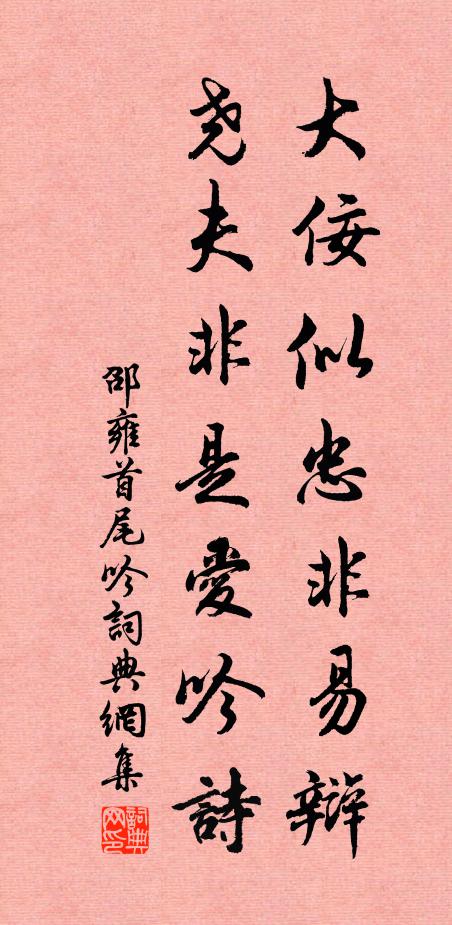 大佞似忠非易辯
尧夫非是愛吟詩
邵雍首尾吟詞典網集
詞典网印